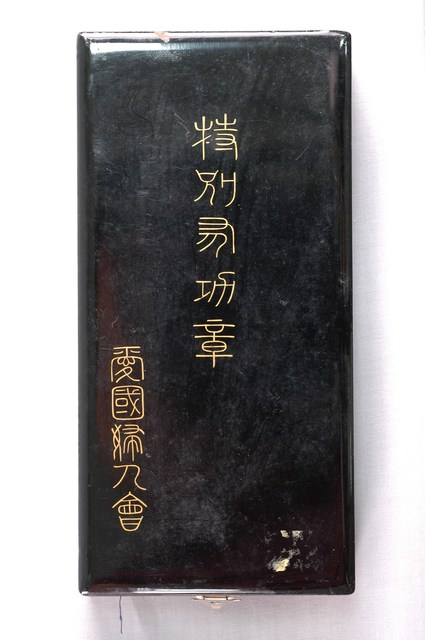 特別有功章
愛國婦人會